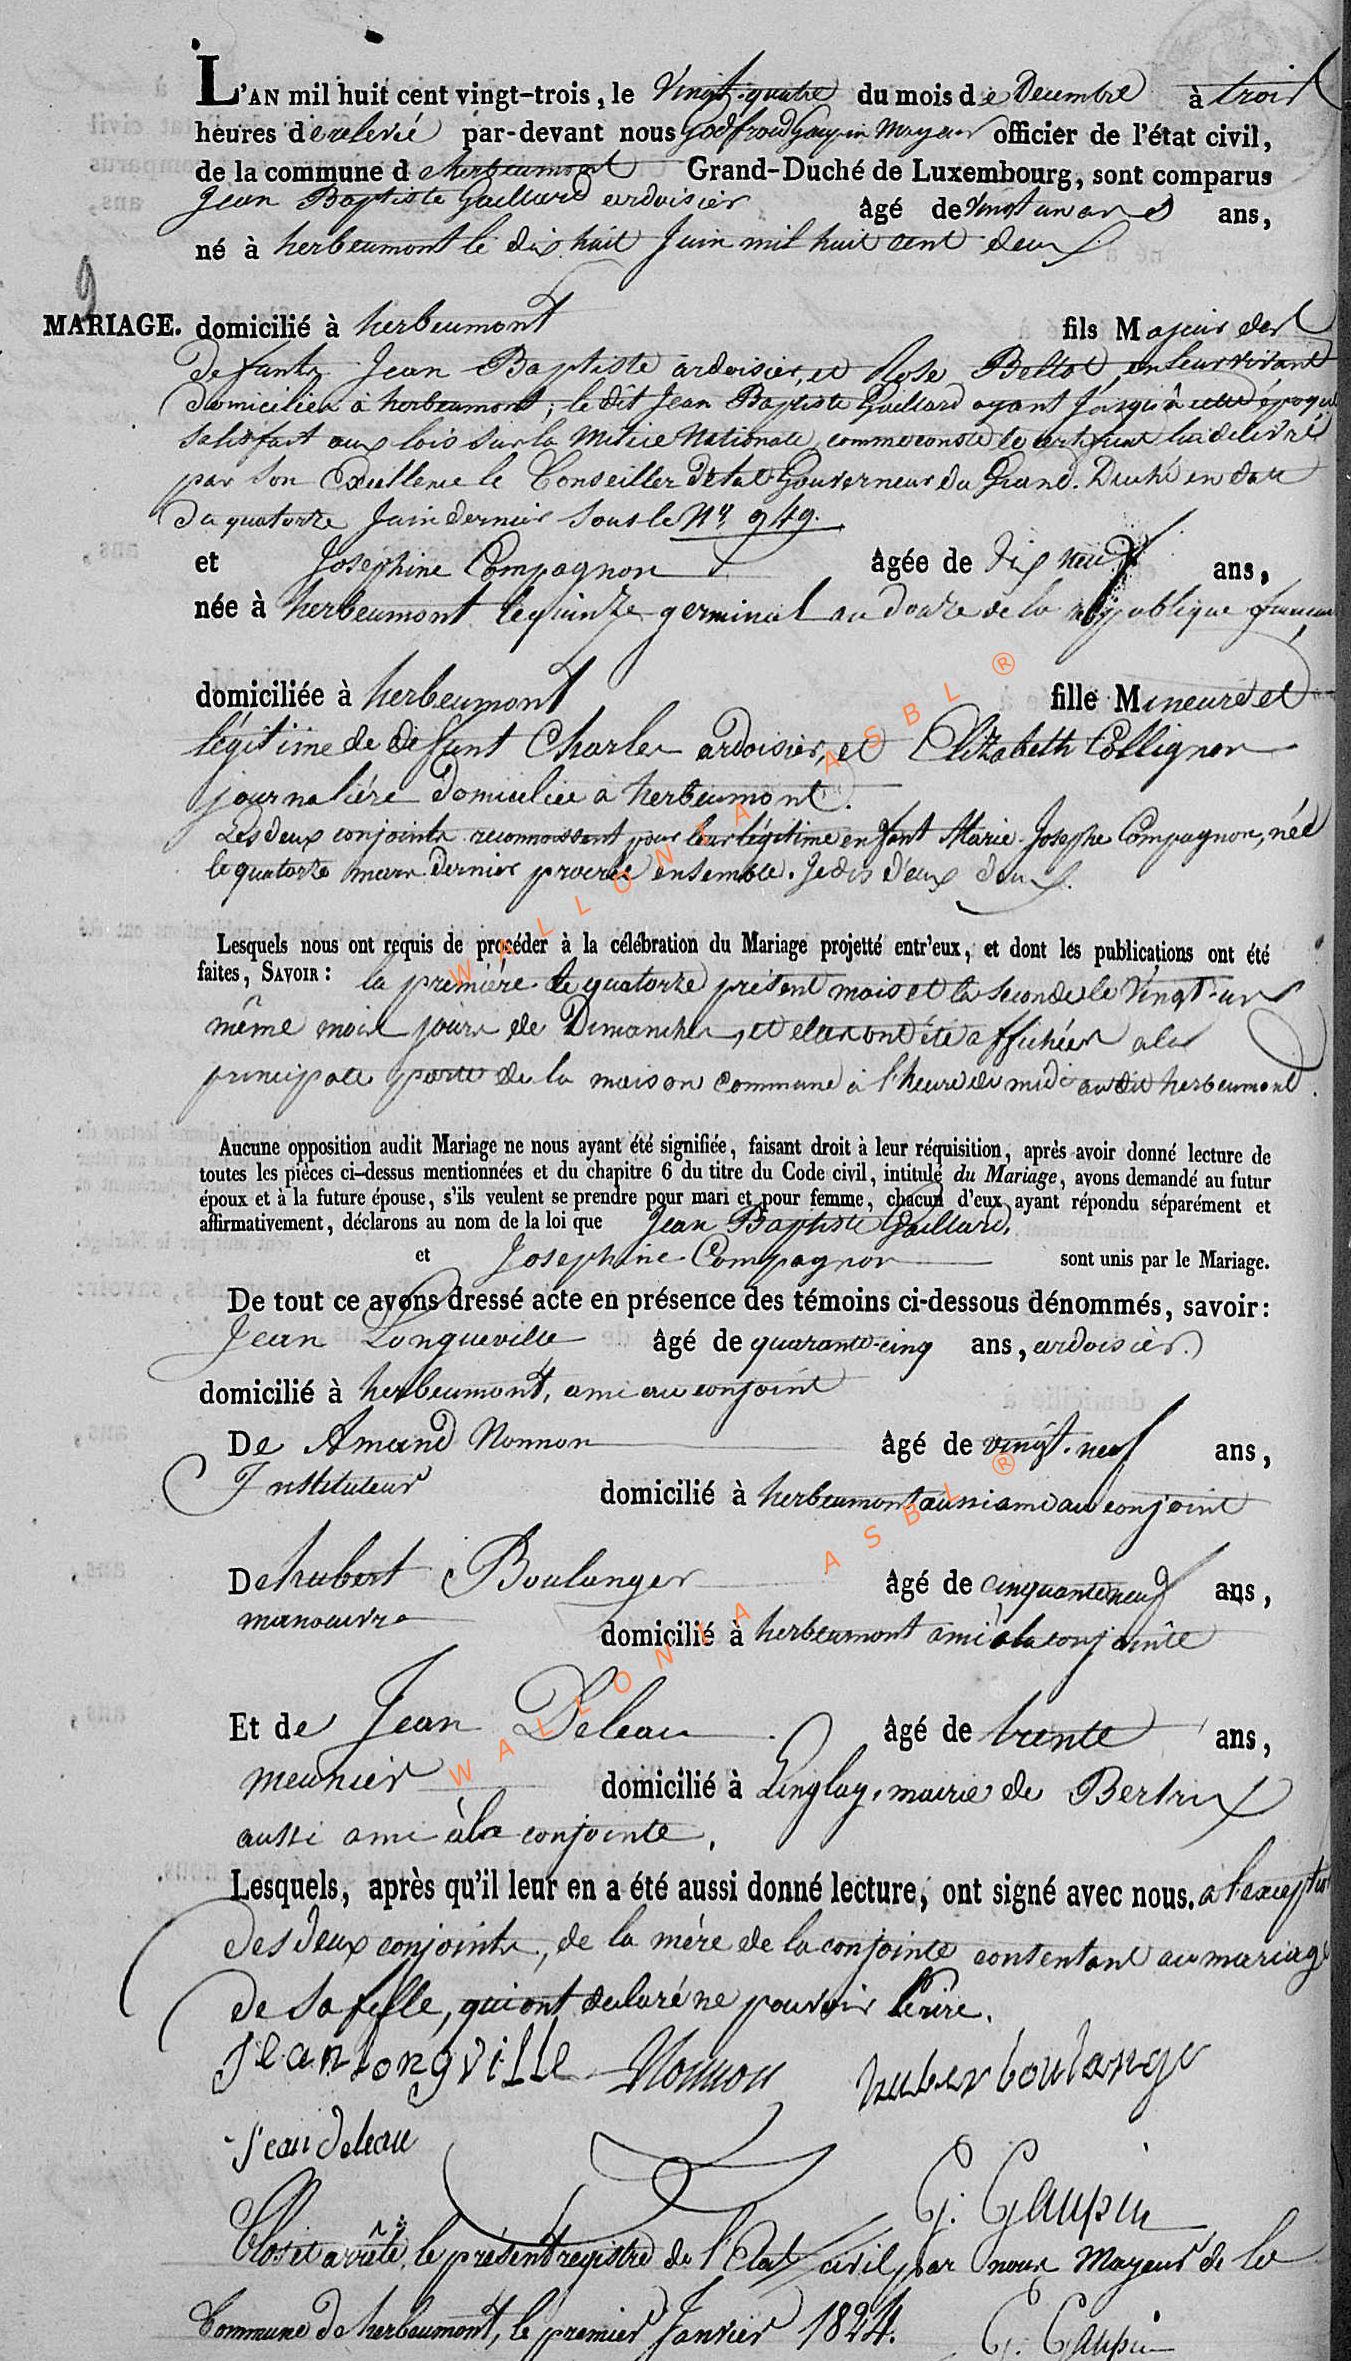 L'AN mil huit cent vingt-trois, le Vingt-quatre du mois de Decembre à trois
heures de relevé par-devant nous Godfroid Gaupin Mayeur officier de l'état civil,
de la commune d herbeumont Grand-Duché de Luxembourg, sont comparus
Jean Baptiste Gaillard ardoisier âgé de vingt un ans ans,
né à herbeumont le dix huit Juin mil huit cent deux
9
MARIAGE. domicilié à herbeumont fils Majeur des
defunts Jean Baptiste ardoisier, et Rose Bellot, en leur vivant
domiciliés à herbeumont; le dit Jean Baptiste Gaillard ayant jusqu'à cette époque
satisfait aux lois sur la Milice Nationale comme conste le certificat lui delivré
par Son Excellence le Conseiller d'état Gouverneur du Grand-Duché en date
du quatorze Juin dernier sous le Nº 949.
et Josephine Compagnon âgée de dix neuf ans,
née à herbeumont le quinze germinal an douze de la république
domiciliée à herbeumont fille Mineure et
légitime de défunt Charles ardoisier, et Elizabeth Collignon
journalière domiciliée à herbeumont.
Les deux conjoints reconnoissent pour leur légitime enfant Marie-Josephe Compagnon, née
le quatorze mars dernier procréé ensemble. Je dis d'eux deux.
Lesquels nous ont requis de procéder à la célébration du Mariage projetté entr'eux, et dont les publications ont été
faites, SAVOIR : la première le quatorze présent mois et la seconde le Vingt-un
même mois jours de Dimanches, et elles ont été affichées a la
principale porte de la maison commune à l'heure de midi audit herbeumont.
Aucune opposition audit Mariage ne nous ayant été signifiée, faisant droit à leur réquisition, après avoir donné lecture de
toutes les pièces ci-dessus mentionnées et du chapitre 6 du titre du Code civil, intitulé du Mariage, avons demandé au futur
époux et à la future épouse, s'ils veulent se prendre pour mari et pour femme, chacun d'eux ayant répondu séparément et
affirmativement, déclarons au nom de la loi que Jean Baptiste Gaillard,
et Josephine Compagnon sont unis par le Mariage.
De tout ce avons dressé acte en présence des témoins ci-dessous dénommés, savoir:
Jean Longueville âgé de quarante-cinq ans, ardoisier
domicilié à herbeumont, ami au conjoint
De Amand Nonnon âgé de vingt-neuf ans,
Instituteur domicilié à herbeumont aussi ami au conjoint
De hubert Boulanger âgé de cinquante neuf ans,
manoeuvre domicilié à herbeumont ami à la conjointe
Et de Jean Deleau âgé de trente ans,
meunier domicilié à Linglay, mairie de Bertrix
aussi ami à la conjointe.
Lesquels, après qu'il leur en a été aussi donné lecture, ont signé avec nous. a l'exception
des deux conjoints, de la mère de la conjointe contentant au mariage
de sa fille, qui ont declaré ne pouvoir écrire.
Jean longville Nonnon huber boulange
Jean deleau
G. Gaupin
Clos et arrêté le présent registre de l'Etat civil par nous Mayeur de la
Commune de herbeumont, le premier Janvier 1824.
G. Gaupin
WALLONIA ASBL ®
WALLONIA ASBL ®